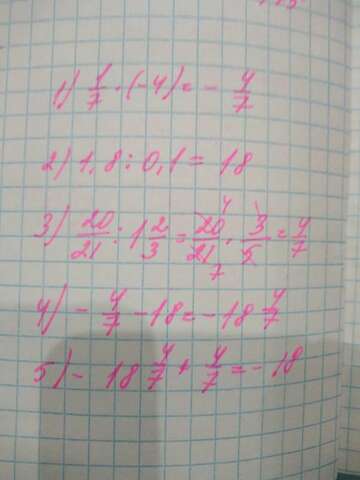 1) 1/7 · (-4) = - 4/7
2) 1,8 : 0,1 = 18
3) 20/21 : 1 2/3 = 20/21 · 3/5 = 4/7
4
1
7
4) - 4/7 - 18 = - 18 4/7
5) - 18 4/7 + 4/7 = - 18